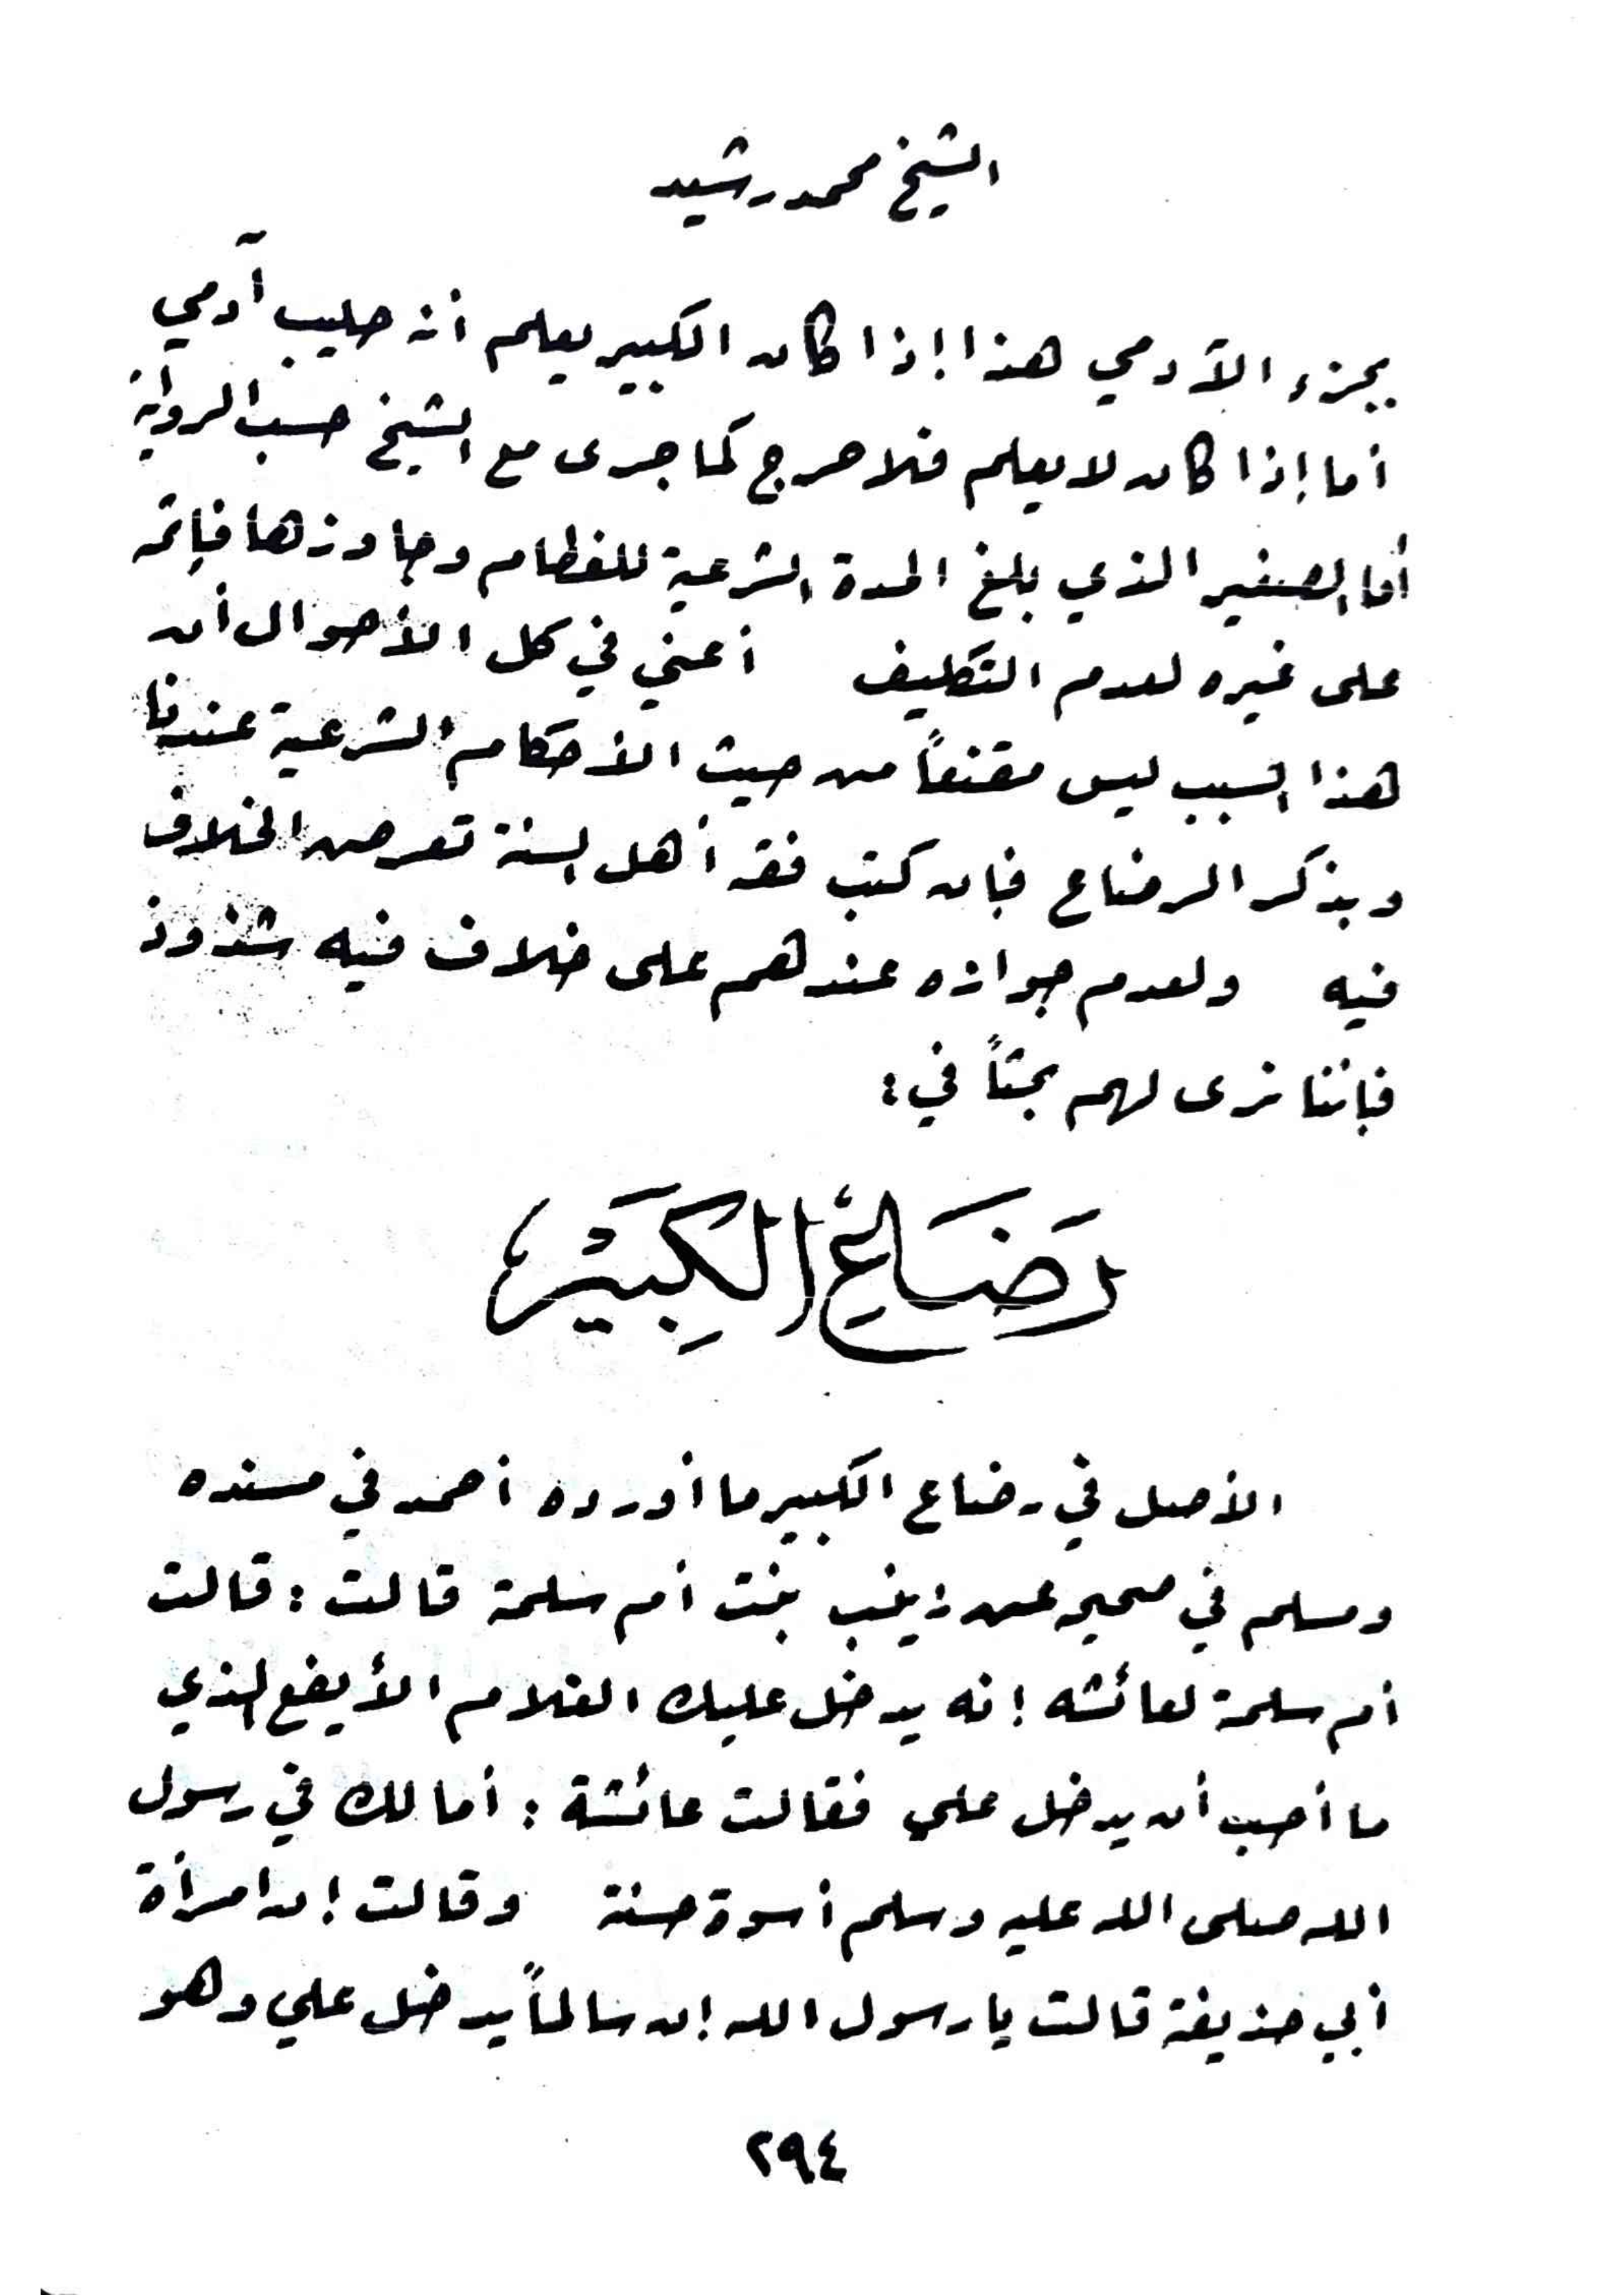 الشيخ محمد رشيد
بجزء الآدمي هذا إذا كان الكبير يعلم أنه حليب آدمي
أما إذا كان لا يعلم فلا حرج كما جرى مع الشيخ حسب الرواية
أما الصغير الذي بلغ المدة الشرعية للفطام وجاوزها فإثمه
على غيره لعدم التكليف أعني في كل الأحوال أن
هذا السبب ليس مقنعاً من حيث الأحكام الشرعية عندنا
وبذكر الرضاع فإن كتب فقه أهل السنة تعرض الخلاف
فيه ولعدم جوازه عندهم على خلاف فيه شذوذ
فإننا نرى لهم بحثاً في :
رَضَاعُ الكَبِيْر
الأصل في رضاع الكبير ما أورده أحمد في مسنده
ومسلم في صحيحه عن زينب بنت أم سلمة قالت : قالت
أم سلمة لعائشه إنه يدخل عليك الغلام الأيفع الذي
ما أحب أن يدخل علي فقالت عائشة : أما لك في رسول
الله صلى الله عليه وسلم أسوة حسنة وقالت إن امرأة
أبي حذيفة قالت يا رسول الله إن سالماً يدخل علي وهو
٢٩٤